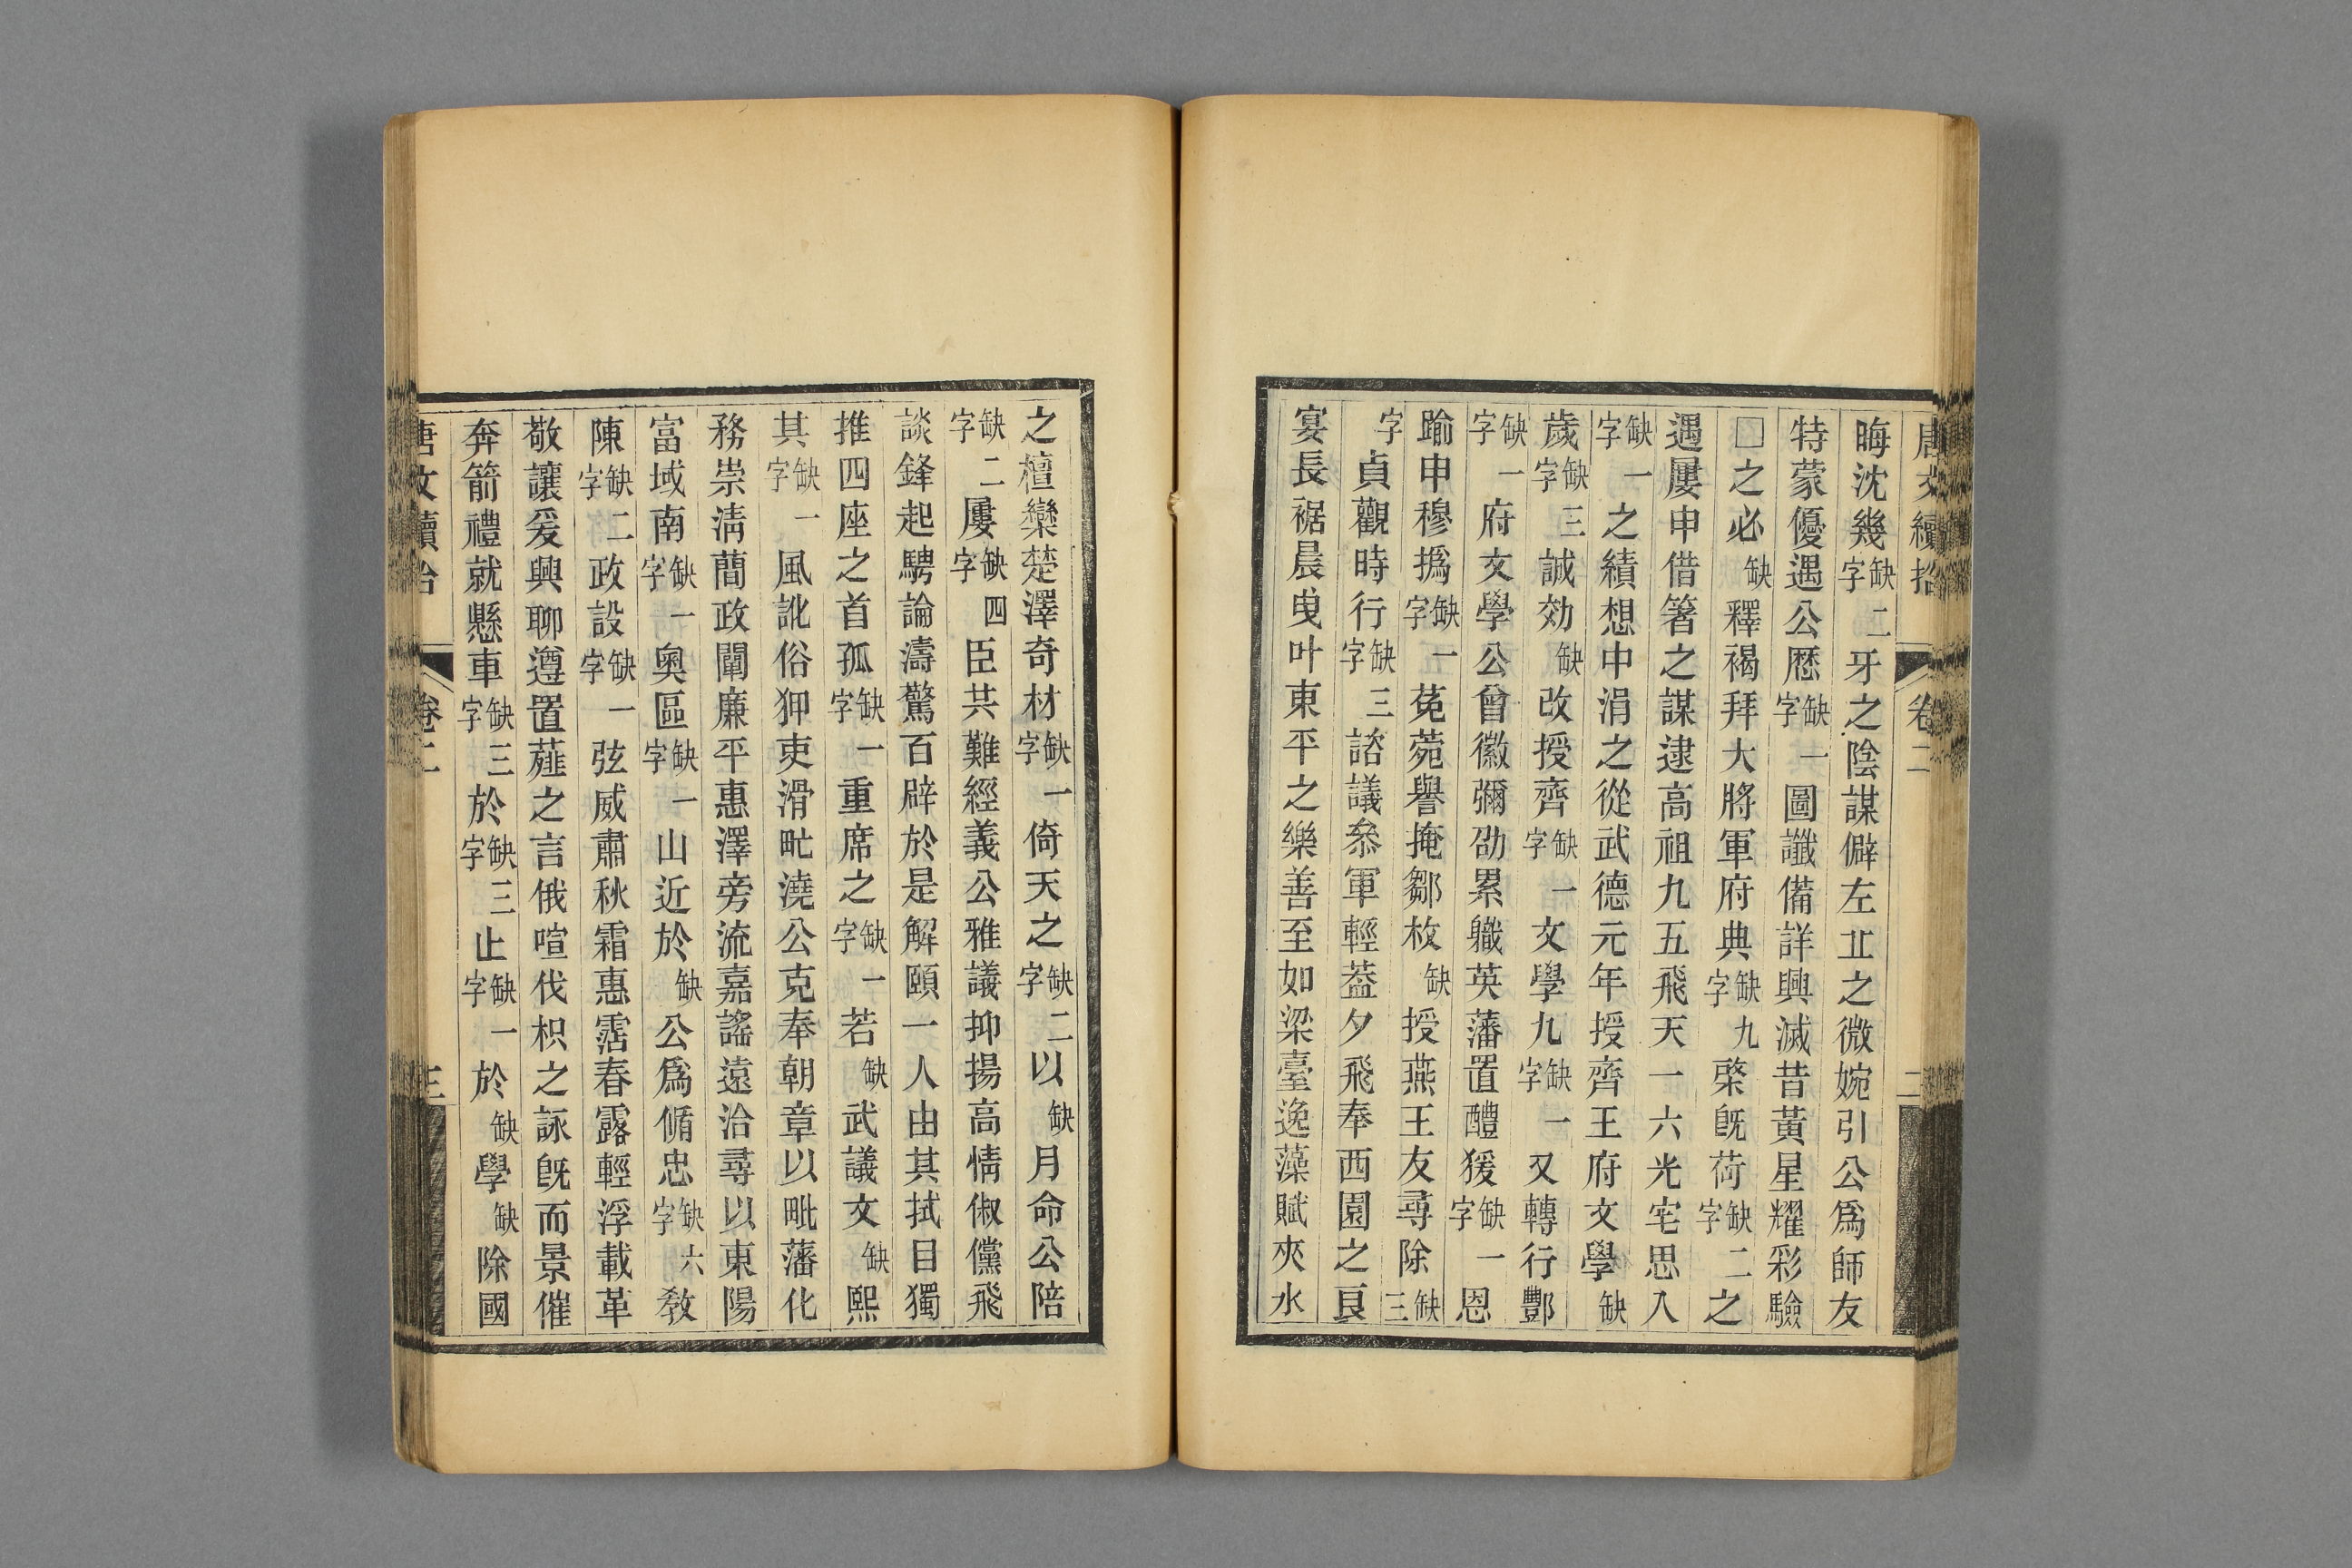 唐文續拾 卷二 二
晦沈幾缺二字牙之陰謀僻左㐀之微婉引公爲師友
特蒙優遇公厯缺一字圖讖備詳興滅昔黃星耀彩驗
□之必缺釋褐拜大將軍府典缺九字棨旣荷缺二字之
遇屢申借箸之謀逮高祖九五飛天一六光宅思入
缺一字之績想中涓之從武德元年授齊王府文學缺
歲缺三字誠効缺改授齊缺一字文學九缺一字又轉行酆
缺一字府文學公曾徽彌劭累軄英藩置醴猨缺一字恩
踰申穆撝缺一字莬菀譽掩鄒枚缺授燕王友尋除缺三
字貞觀時行缺三字諮議叅軍輕葢夕飛奉西園之㒵
宴長裾晨曳叶東平之樂善至如梁臺逸藻賦夾水
之檀欒楚澤奇材缺一字倚天之缺二字以缺月命公陪
缺二字屢缺四字臣共難經義公雅議抑揚高情俶儻飛
談鋒起騁論濤驚百辟於是解頤一人由其拭目獨
推四座之首孤缺一字重席之缺一字若缺武議文缺熙
其缺一字風訛俗狎吏滑甿澆公克奉朝章以毗藩化
務崇淸蕳政闡廉平惠澤旁流嘉謠遠洽尋以東陽
富域南缺一字奧區缺一字山近於缺公爲脩忠缺六字敎
陳缺二字政設缺一字弦威肅秋霜惠霑春露輕浮載革
敬讓爰興聊遵置薤之言俄喧伐枳之詠旣而景催
奔箭禮就懸車缺三字於缺三字止缺一字於缺學缺除國
唐文續拾 卷二 三